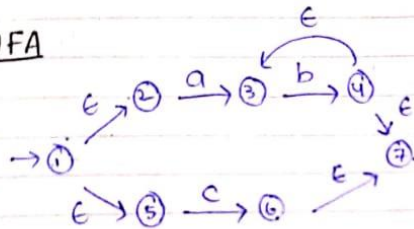 FA
ε
ε ② a ③ b ④ ε
→ ① ⑦
ε ⑤ c ⑥ ε